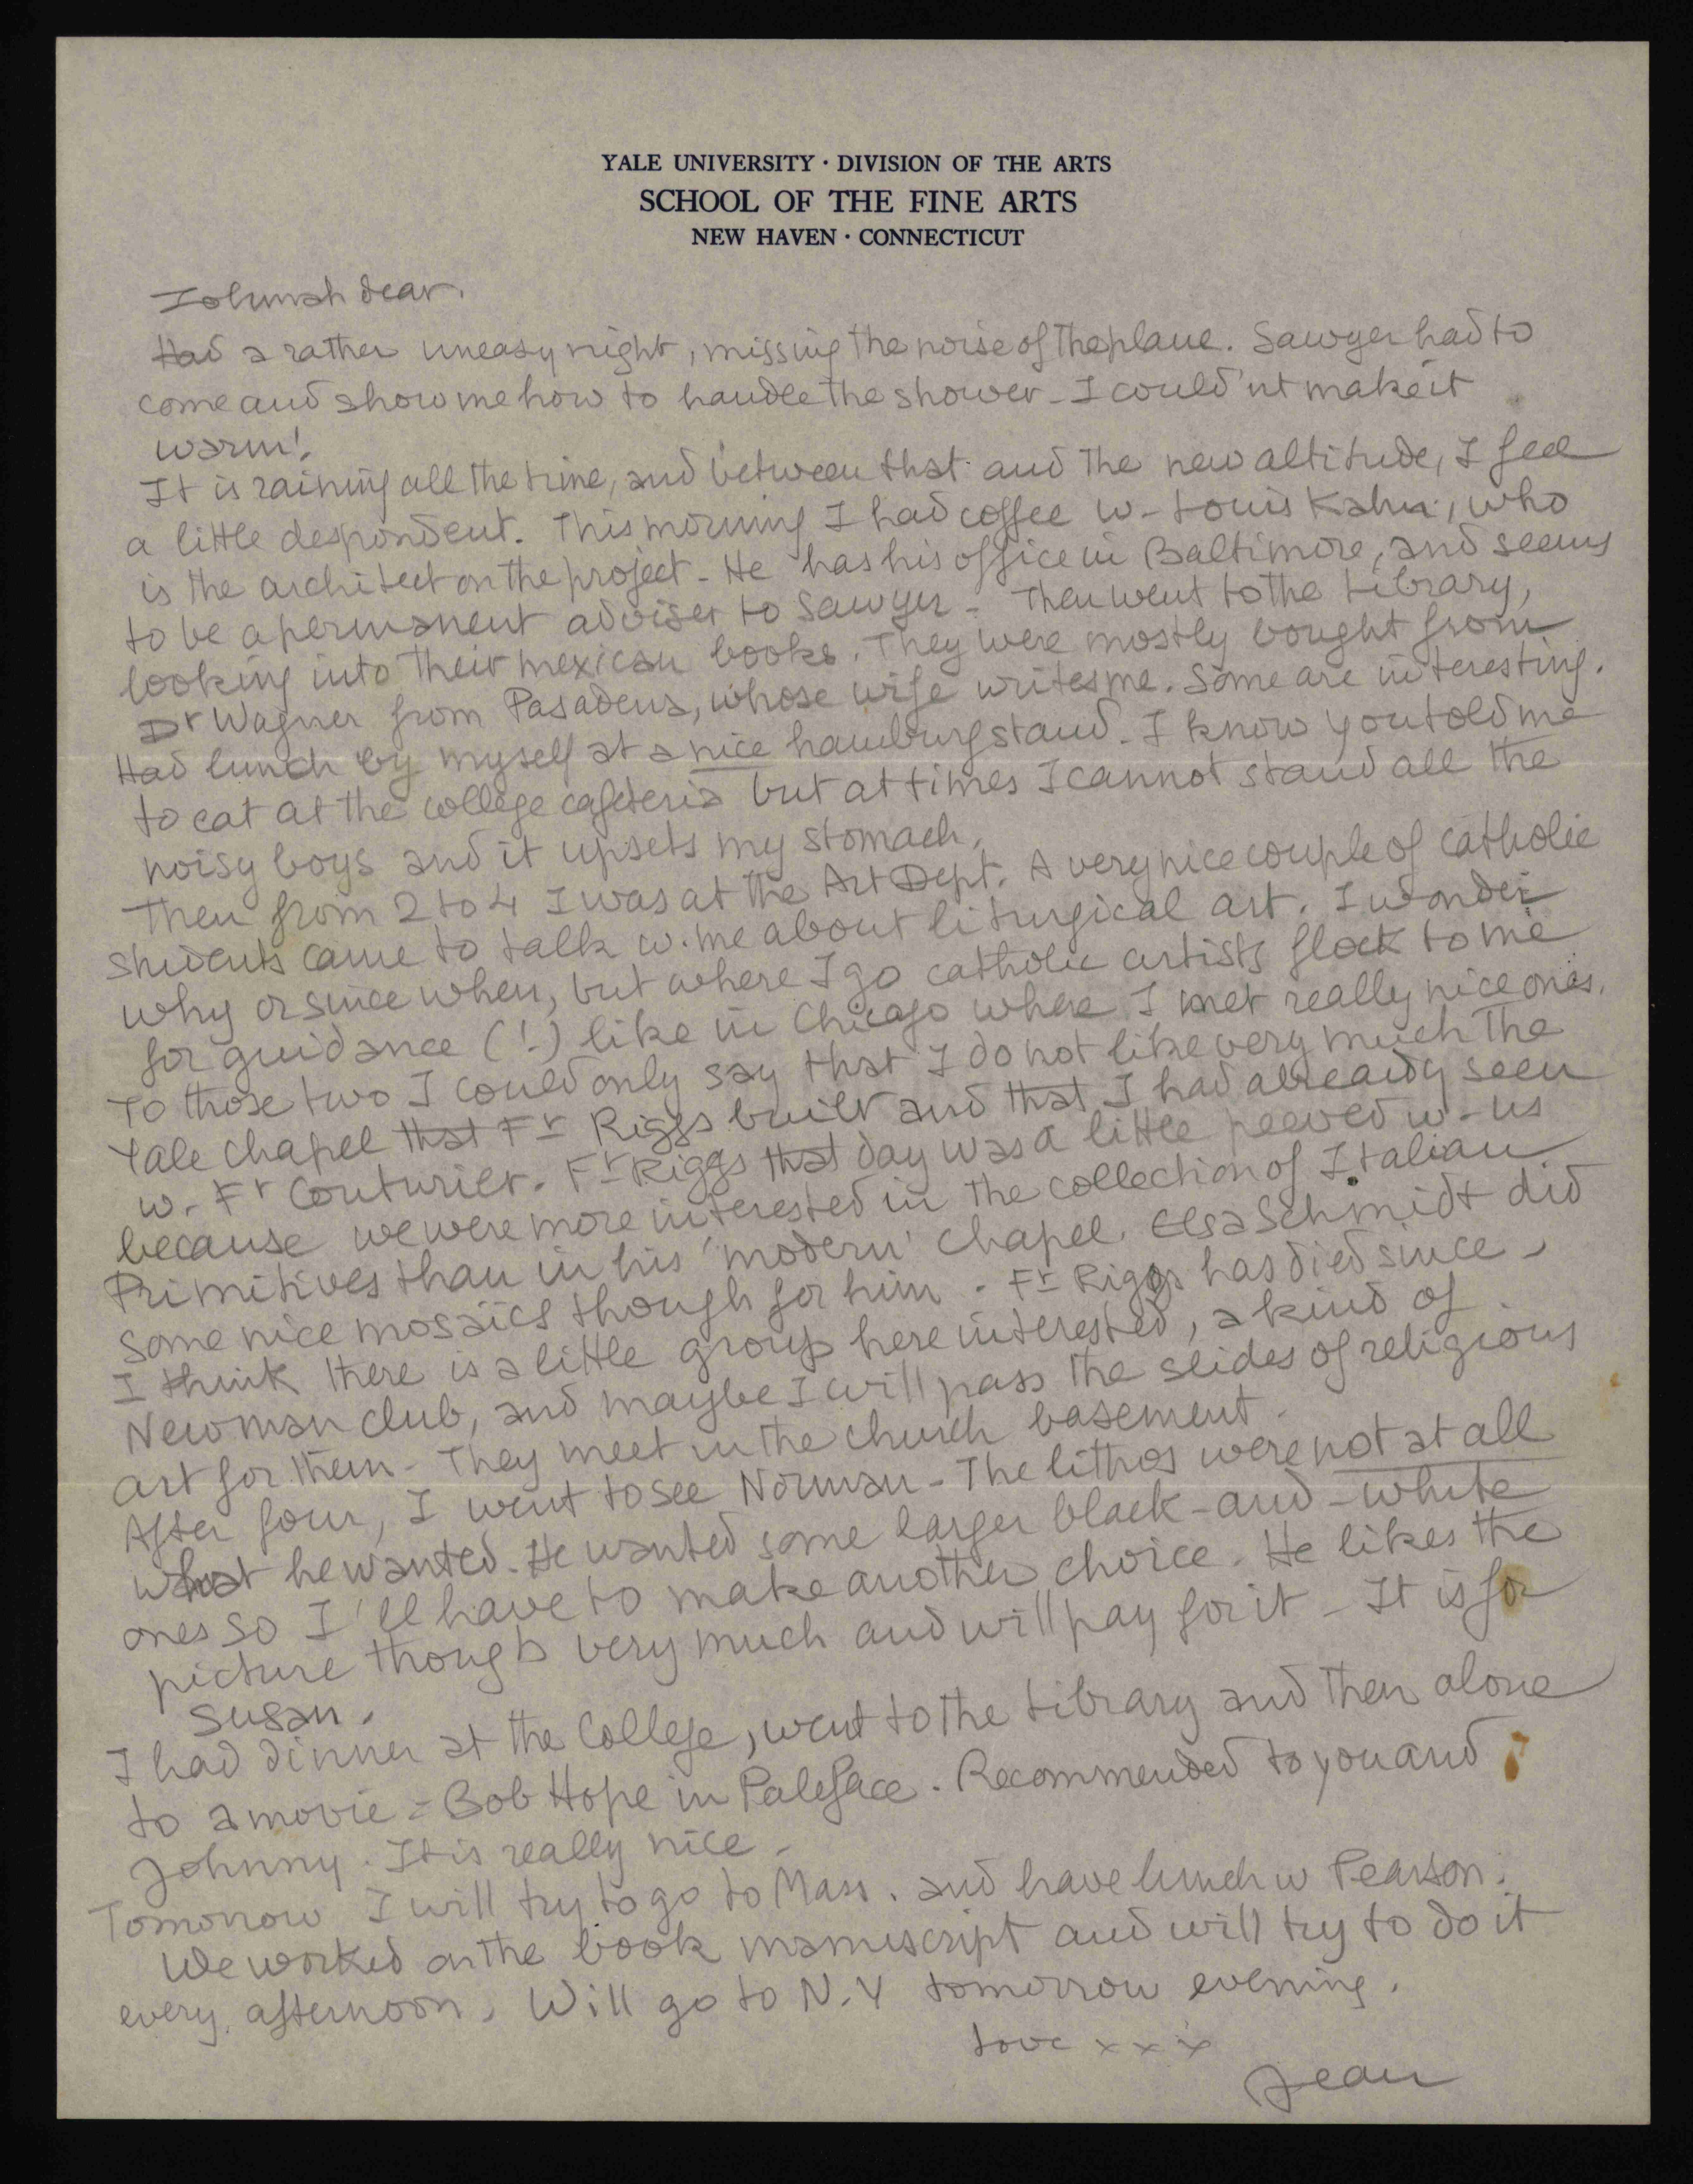 YALE UNIVERSITY · DIVISION OF THE ARTS
SCHOOL OF THE FINE ARTS
NEW HAVEN · CONNECTICUT
Zohmah dear.
Had a rather uneasy night, missing the noise of the plane. Sawyer had to
come and show me how to handle the shower - I could'nt make it
warm!
It is raining all the time, and between that and the new altitude, I feel
a little despondent. This morning I had coffee w- Louis Kahn, who
is the architect on the project - He has his office in Baltimore, and seems
to be a permanent adviser to Sawyer - Then went to the Library,
looking into their mexican books. They were mostly bought from
Dr Wagner from Pasadena, whose wife writes me. Some are interesting.
Had lunch by myself at a nice hamburg stand - I know you told me
to eat at the college cafeteria but at times I cannot stand all the
noisy boys and it upsets my stomach.
Then from 2 to 4 I was at the Art Dept. A very nice couple of catholic
students came to talk w. me about liturgical art. I wonder
why or since when, but where I go catholic artists flock to me
for guidance (!) like in Chicago where I met really nice ones.
To those two I could only say that I do not like very much the
Yale chapel that Fr Riggs built and that I had already seen
w. Fr Couturier. Fr Riggs that day was a little peeved w- us
because we were more interested in the collection of Italian
Primitives than in his 'modern' chapel. Elsa Schmidt did
some nice mosaics though for him. Fr Riggs has died since -
I think there is a little group here interested, a kind of
Newman club, and maybe I will pass the slides of religious
art for them - They meet in the church basement.
After four, I went to see Norman - The lithos were not at all
what he wanted. He wanted some larger black-and-white
ones so I'll have to make another choice. He likes the
picture though very much and will pay for it - It is for
Susan.
I had dinner at the College, went to the Library and then alone
to a movie = Bob Hope in Paleface. Recommended to you and
Johnny. It is really nice -
Tomorrow I will try to go to Mass. and have lunch w Pearson.
We worked on the book manuscript and will try to do it
every afternoon. Will go to N.Y tomorrow evening.
Love x x x
Jean